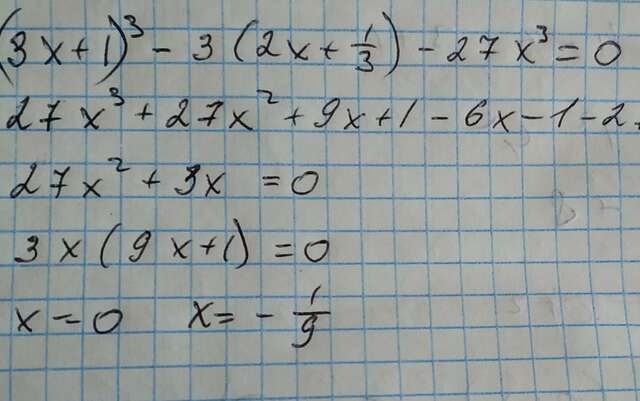 (3x+1)³ - 3(2x+1/3) - 27x³ = 0
27x³ + 27x² + 9x + 1 - 6x - 1 - 2
27x² + 3x = 0
3x(9x+1) = 0
x = 0 x = - 1/9